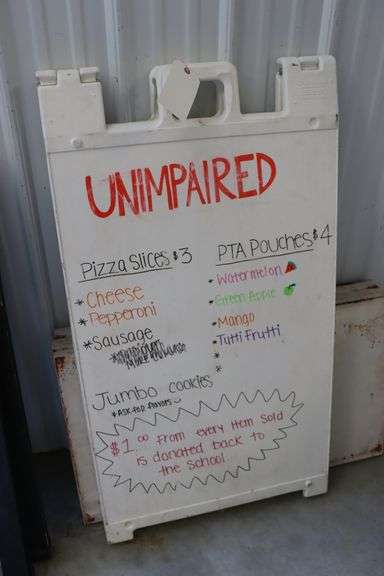 UNIMPAIRED
Pizza Slices $3
* Cheese
* Pepperoni
* Sausage
Jumbo cookies
* Ask for flavors
PTA Pouches $4
* Watermelon
* Green Apple
* Mango
* Tutti Frutti
*
*
$1.00 From every item sold
is donated back to
the school